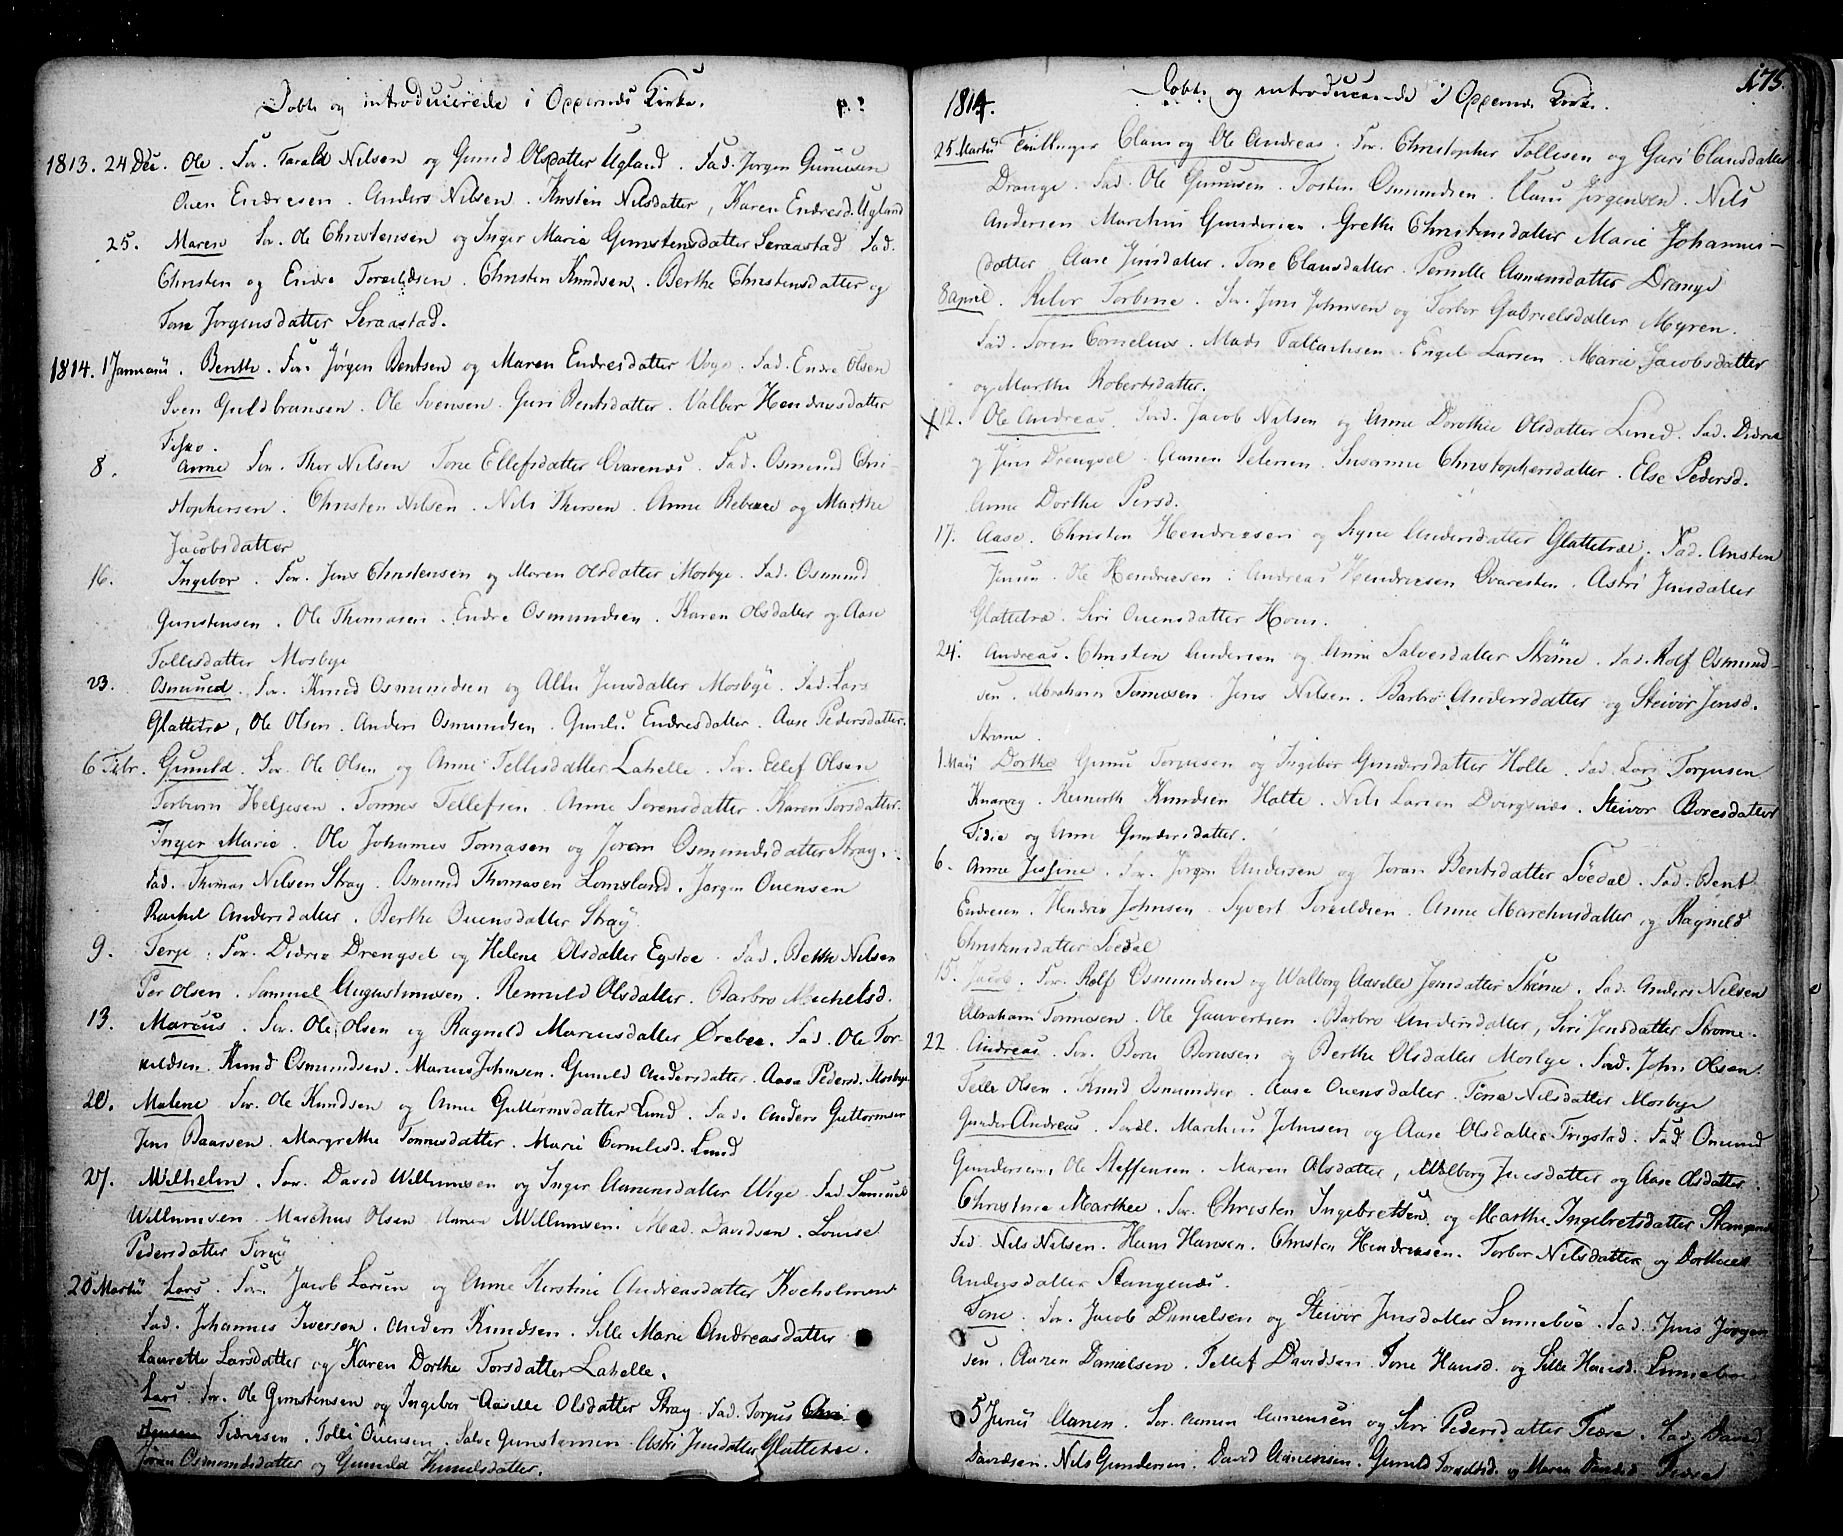 Döbte og introducerede i Oppernes Kirke.
1813. 24 Dec. Ole. For. Tarald Nilsen og Gunild Olsdatter Ugland. Fad. Jørgen Gunnusen
Ouen Endresen. Anders Nilsen. Kirsten Nilsdatter, Karen Endresd. Ugland
25. Maren For. Ole Christensen og Inger Marie Gunstensdatter Seraastad Fad.
Christen og Endre Toreildsen. Christen Knudsen. Berthe Christensdatter og
Tone Jørgensdatter Seraastad.
1814. 1 Januarii. Benth. For. Jørgen Bentsen og Maren Endresdatter Fad. Endre Olsen
Sven Guldbransen. Ole Svensen. Guri Bentsdatter. Valbor Hendricsdatter
8. Anne For. Thor Nilsen Tone Ellefsdatter Qvarenæs. Fad. Osmund Chri-
stophersen. Christen Nilsen. Nils Thorsen. Anne Rebecce og Marthe
Jacobsdatter
16. Ingebor. For. Jens Christensen og Maren Olsdatter Mosbye. Fad. Osmund
Gunstensen. Ole Thomasen. Endre Osmundsen. Karen Olsdatter og Aase
Tollisdatter Mosbye
23. Osmund. For. Knud Osmundsen og Jensdatter Mosbye. Fad. Lars
Glattetræ, Ole Olsen. Anders Osmundsen. Endresdatter. Aase Pedersdatter.
6 Febr. Gunild. For. Ole Olsen og Anne Tellisdatter Lahelle. For. Ellef Olsen
Torbiorn Heljesen. Tønnes Tellefsen. Anne Sorensdatter. Karen Torsdatter.
Inger Marie. Ole Johannes Tomasen og Joran Osmundsdatter Stray.
Fad. Thomas Nilsen Stray. Osmund Thomasen Lomsland. Jørgen Ouensen
Rachel Andersdatter. Berthe Ouensdatter Stray
9. Terje. For. Didric Drengsel og Helene Olsdatter Egstøe. Fad. Nilsen
Per Olsen. Samuel Augustinusen. Renuld Olsdatter. Barbro Michelsd.
13. Marcus. For. Ole Olsen og Ragnild Marcusdatter Fad. Ole Tor-
kildsen. Knud Osmundsen. Marcus Johnsen. Gunild Andersdatter. Aasa Pedersd. Mosbye
20. Malene For. Ole Knudsen og Anne Guttormsdatter Lund. Fad. Anders Guttormsen
Jens Baarsen. Margrethe Tønnesdatter. Marie Cornelisd. Lund
27. Wilhelm. For. David Willumsen og Inger Aanensdatter Fad. Samuel
Willumsen Marchus Olsen Aanen Willumsen. Mad. Davidsen. Louise
Pedersdatter
20 Martii Lars. For. Jacob Larsen og Anne Kirstine Andreasdatter Kocholmen
Fad. Johannes Iversen. Anders Knudsen. Sille Marie Andreasdatter
Laurette Larsdatter og Karen Dorthe Torsdatter Lahelle.
Lars. For. Ole Gunstensen og Ingebor Aaselle Olsdatter Stray Fad. Torjus
Tellef. Tolli Ouensen. Salve Gunstensen. Astri Jensdatter Glattetræ.
Joran Osmundsdatter og Gunild Knudsdatter.
175.
1814. Döbte og introducerede i Oppernes Kirke.
25 Martii Tvillinger Claus og Ole Andreas. For. Christopher Tollisen og Guri Clausdatter
Drange. Fad. Ole Gunnusen. Tosten Osmundsen. Claus Jørgensen. Nils
Andersen Marchus Gundersen. Grethe Christensdatter Marie Johannes-
datter Aase Jensdatter. Tone Clausdatter. Pernille Aanensdatter Drange
8 April. Torbine. For. Jens Johnsen og Torbor Gabrielsdatter Myren.
Fad. Soren Cornelius. Mads Engel Larsen. Marie Jacobsdatter
og Marthe Robertsdatter.
12. Ole Andreas. For. Jacob Nilsen og Anne Dorothie Olsdatter Lund. Fad. Didric
og Jens Drengsel. Aanen Petersen. Susanne Christophersdatter. Else Pedersd.
Anne Dorthe Persd.
17. Aase. Christen Hendricsen og Signe Andersdatter Glattetræ. Fad. Ansten
Jensen. Ole Hendricsen. Andreas Hendricsen Qvaresten. Astri Jensdatter
Glattetræ. Siri Ouensdatter Hom.
24. Andreas. Christen Andersen og Anne Salvesdatter Strøme. Fad. Rolf Osmund-
sen. Abraham Tomasen. Jens Nilsen. Barbro Andersdatter og Steivor Jensd.
Strøme.
1 Maii Dorthe Gunnu Torjusen og Ingebor Gundersdatter Holte. Fad. Lars Torjusen
Knarvig. Reinerth Knudsen Holte. Nils Larsen Dvergsnes. Steivor Boresdatter
og Anne Gundersdatter.
6. Anne Josfine. For. Jørgen Andersen og Joran Bentsdatter Søedal. Fad. Bent
Endresen. Hendric Johnsen. Syvert Toreildsen. Anne Marchusdatter og Ragnild
Christensdatter Søedal
15. Jacob. For. Rolf Osmundsen og Walborg Aaselle Jensdatter Strøme. Fad. Anders Nilsen
Abraham Tomasen. Ole Gauvertsen. Barbro Andersdatter, Siri Jensdatter Strøme.
22 Andreas. For. Børe Børesen og Berthe Olsdatter Mosbye. Fad. John Olsen.
Telle Olsen. Knud Osmundsen. Aase Ouensdatter. Tone Nilsdatter Mosbye
Gunder Andreas. Marchus Johnsen og Aase Olsdatter Trygstad. Fad. Omund
Gundersen. Ole Steffensen. Maren Olsdatter, Walborg og Aase Olsdatter.
Christine Marthee. For. Christen Ingebretsen og Marthe Ingebretsdatter Stangenæs
Fad. Nils Nilsen. Hans Hansen. Christen Hendricsen. Torbor Nilsdatter og Dorthee
Andersdatter Stangenæs.
Tone. For. Jacob Danielsen og Steivor Jensdatter Linnebøe. Fad. Jens Jørgen-
sen. Aanen Danielsen. Tellef Davidsen. Tone Hansd. og Sille Hansd. Linnebøe
5 Junii Aanen. For. Aanen Aanensen og Siri Pedersdatter Fad. David
Davidsen. Nils Gundersen. David Aanensen. Gunild og Maren Davidsd.